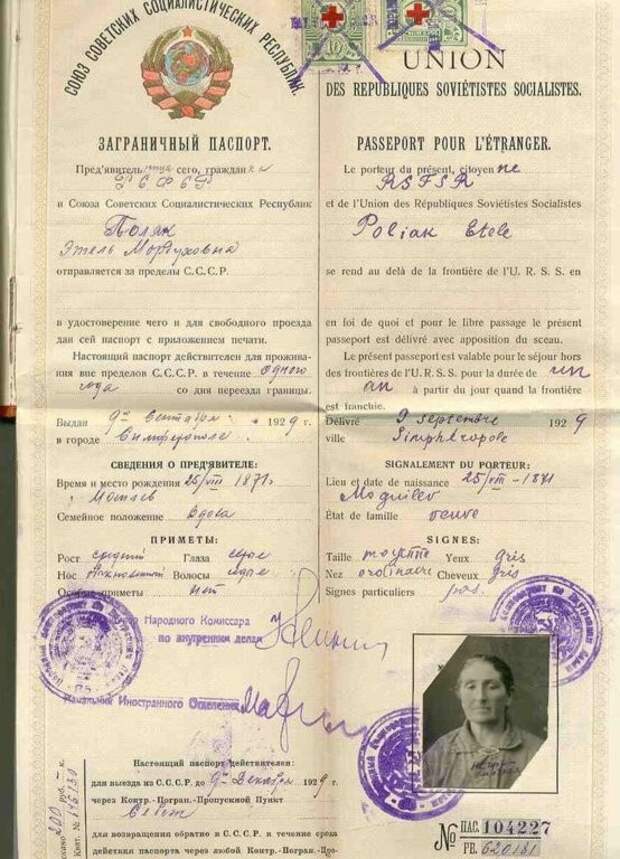 СОЮЗ СОВЕТСКИХ СОЦИАЛИСТИЧЕСКИХ РЕСПУБЛИК.
ЗАГРАНИЧНЫЙ ПАСПОРТ.
Пред'явитель сего, граждан ка
РСФСР
и Союза Советских Социалистических Республик
Поляк
Этель Мордуховна
отправляется за пределы С.С.С.Р.
в удостоверение чего и для свободного проезда
дан сей паспорт с приложением печати.
Настоящий паспорт действителен для прожива-
ния вне пределов С.С.С.Р. в течение одного
года со дня переезда границы.
Выдан 9го Сентября 1929 г.
в городе Симферополе.
СВЕДЕНИЯ О ПРЕД'ЯВИТЕЛЕ:
Время и место рождения 25/VIII 1871г
Могилев
Семейное положение Вдова
ПРИМЕТЫ:
Рост средний Глаза серые
Нос обыкновенный Волосы седые
Особые приметы нет
Народного Комиссара
по внутренним делам
Начальник Иностранного Отделения
Настоящий паспорт действителен:
для выезда из С.С.С.Р. до 9го Декабря 1929 г.
через Контр.-Погран.-Пропускной Пункт
для возвращения обратно в С.С.С.Р. в течение срока
действия паспорта через любой Контр.-Погран.-Про-
200 руб.
Квит. №
10
UNION
DES REPUBLIQUES SOVIÉTISTES SOCIALISTES.
PASSEPORT POUR L'ÉTRANGER.
Le porteur du présent, citoyen ne
RSFSR
et de l'Union des Républiques Soviétistes Socialistes
Poliak Etele
se rend au delà de la frontière de l'U. R. S. S. en
en foi de quoi et pour le libre passage le présent
passeport est délivré avec apposition du sceau.
Le présent passeport est valable pour le séjour hors
des frontières de l'U. R. S. S. pour la durée de un
an à partir du jour quand la frontière
est franchie.
Délivré 9 septembre 1929
ville Simphéropole
SIGNALEMENT DU PORTEUR:
Lieu et date de naissance 25/VIII - 1871
Moguilev
État de famille veuve
SIGNES:
Taille moyenne Yeux gris
Nez ordinaire Cheveux gris
Signes particuliers pas.
№ ПАС. 104227
РЕ. 620181